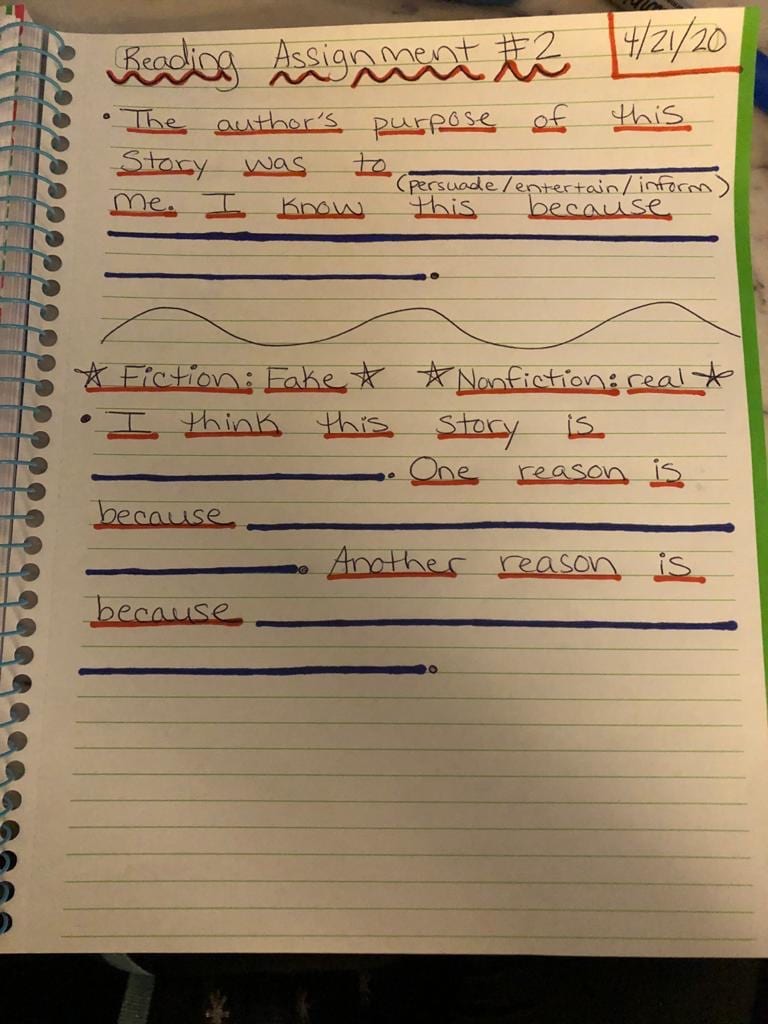 Reading Assignment #2 4/21/20
• The author's purpose of this
Story was to
(persuade/entertain/inform)
me. I know this because
.
☆ Fiction: Fake ☆ ☆ Nonfiction: real ☆
• I think this story is
. One reason is
because
. Another reason is
because
.